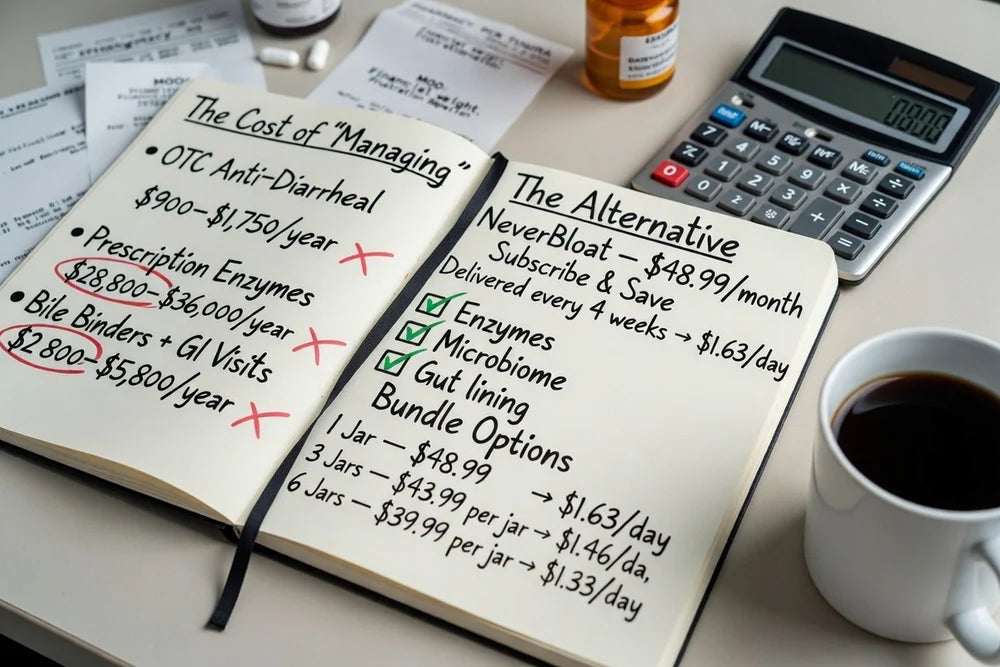 The Cost of "Managing"
• OTC Anti-Diarrheal
$900–$1,750/year
• Prescription Enzymes
$28,800–$36,000/year
• Bile Binders + GI Visits
$2800–$5,800/year
The Alternative
NeverBloat – $48.99/month
Subscribe & Save
Delivered every 4 weeks → $1.63/day
Enzymes
Microbiome
Gut lining
Bundle Options
1 Jar – $48.99 → $1.63/day
3 Jars – $43.99 per jar → $1.46/da,
6 Jars – $39.99 per jar → $1.33/day